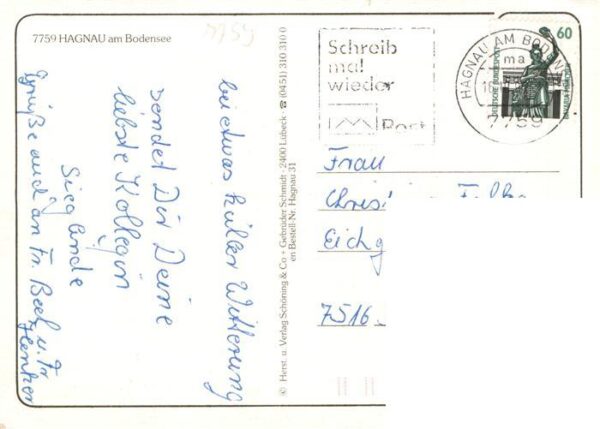 7759 HAGNAU am Bodensee
bei etwas kühler Witterung
sendet Dir Deine
liebste Kollegin
Sieglinde
Grüße auch an Fr. Beck u. Fr.
© Herst. u. Verlag Schöning & Co + Gebrüder Schmidt · 2400 Lübeck · ☎ (0451) 310 310 0
en Bestell-Nr. Hagnau 31
Schreib
mal
wieder
Post
HAGNAU AM BODEN
ma
7759
60
DEUTSCHE BUNDESPOST
BAVARIA MÜNCHEN
Frau
Eichg
7516